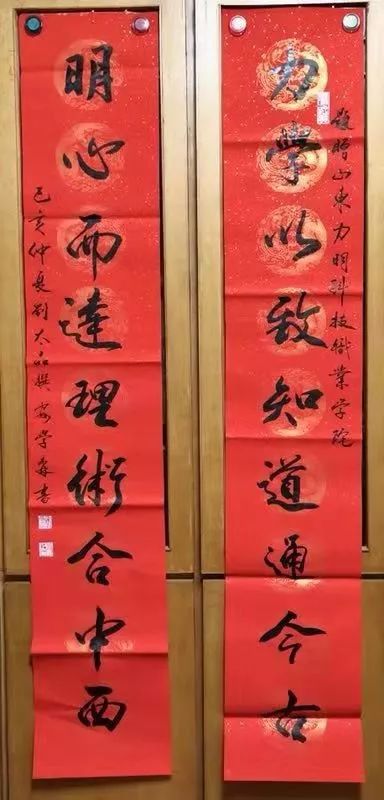 敬贈山东力明科技職業学院
力學以致知道通今古
明心而達理術合中西
己亥仲夏劉大品撰安学森書